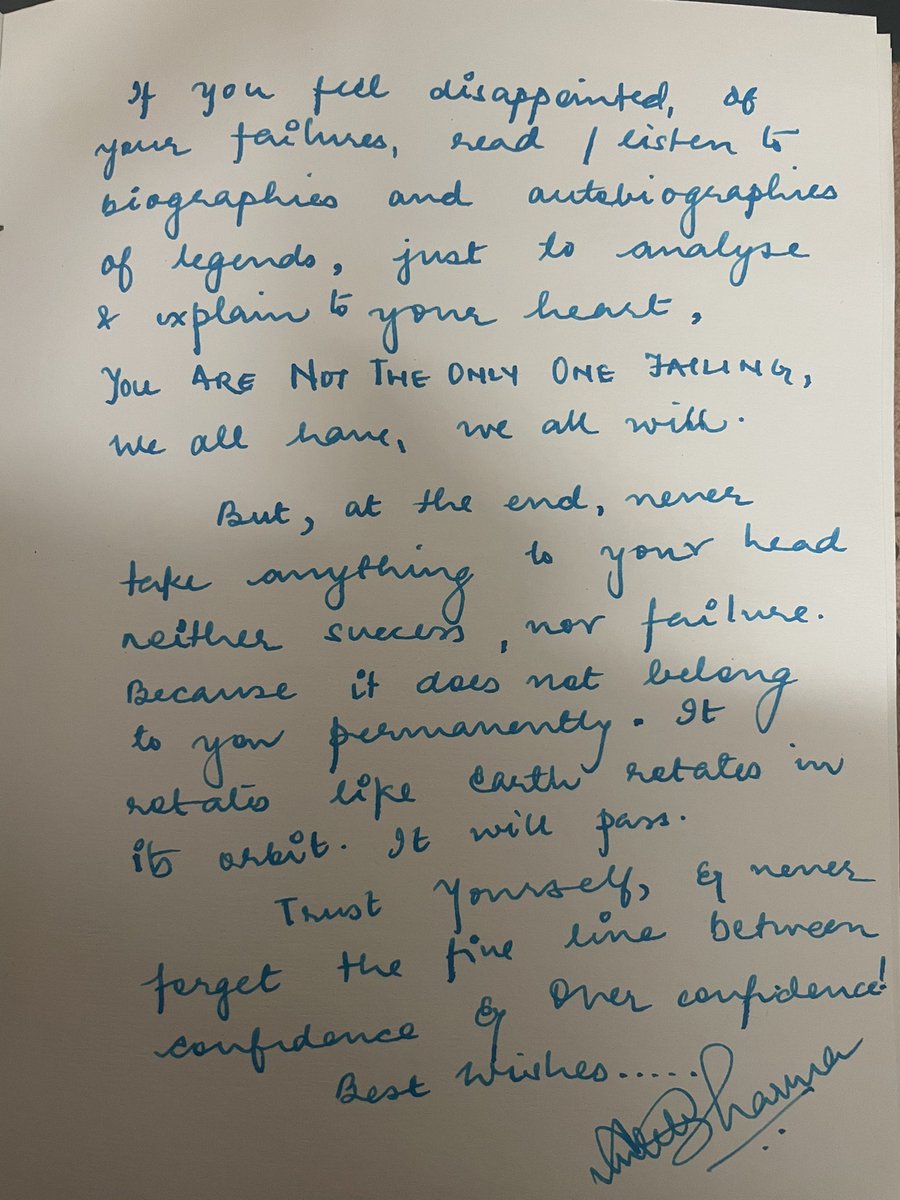 If you feel disappointed, of
your failures, read / listen to
biographies and autobiographies
of legends, just to analyse
& explain to your heart,
YOU ARE NOT THE ONLY ONE FAILING,
we all have, we all will.
But, at the end, never
take anything to your head
neither success, nor failure.
Because it does not belong
to you permanently. It
rotates like Earth rotates in
its orbit. It will pass.
Trust yourself, & never
forget the fine line between
confidence & over confidence!
Best wishes.....
Sharma